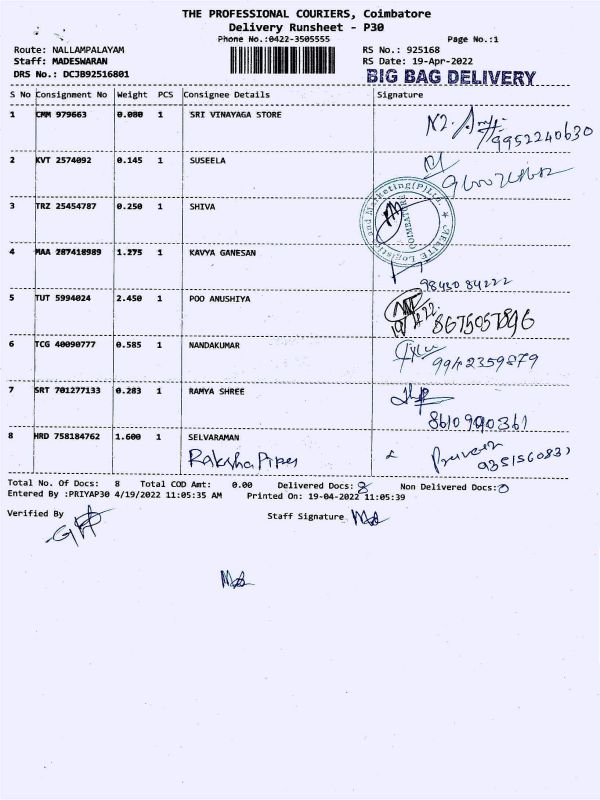 THE PROFESSIONAL COURIERS, Coimbatore
Delivery Runsheet - P30
Phone No.:0422-3505555 Page No.:1
Route: NALLAMPALAYAM RS No.: 925168
Staff: MADESWARAN RS Date: 19-Apr-2022
DRS No.: DCJB92516801 BIG BAG DELIVERY
S No Consignment No Weight PCS Consignee Details Signature
1 CMM 979663 0.080 1 SRI VINAYAGA STORE
9952240630
2 KVT 2574092 0.145 1 SUSEELA
3 TRZ 25454787 0.250 1 SHIVA
4 MAA 287418989 1.275 1 KAVYA GANESAN
98430 84222
5 TUT 5994024 2.450 1 POO ANUSHIYA
8675057896
6 TCG 40090777 0.585 1 NANDAKUMAR
9942359879
7 SRT 701277133 0.283 1 RAMYA SHREE
8610990361
8 HRD 758184762 1.600 1 SELVARAMAN
Raksha Pipes
Total No. Of Docs: 8 Total COD Amt: 0.00 Delivered Docs: 8 Non Delivered Docs: 0
Entered By :PRIYAP30 4/19/2022 11:05:35 AM Printed On: 19-04-2022 11:05:39
Verified By Staff Signature